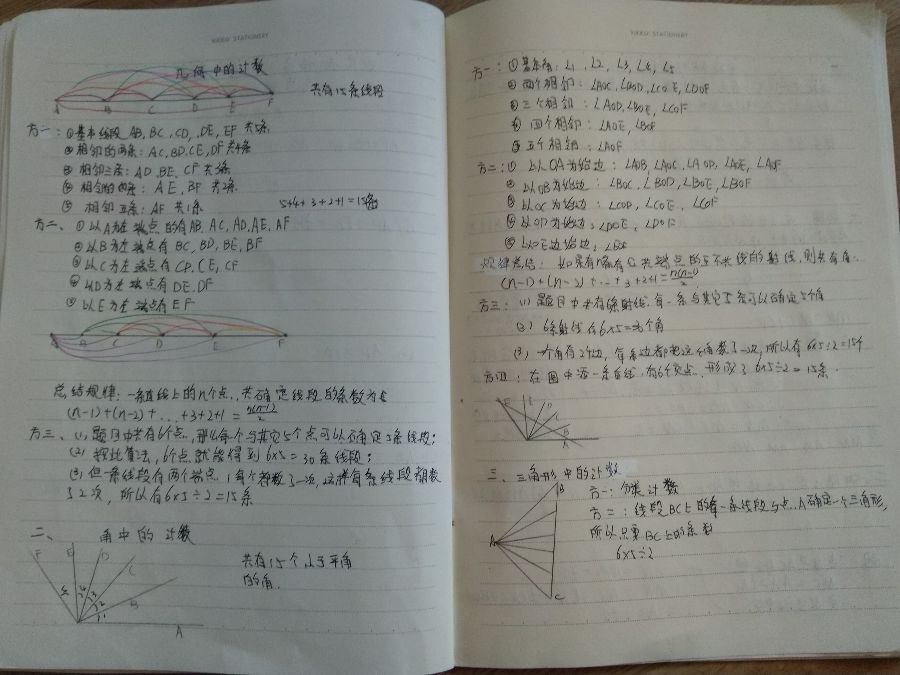 NAKEI STATIONERY
几何中的计数
A B C D E F
共有15条线段
方一:①基本线段 AB, BC, CD, DE, EF 共5条
②相邻的两条: AC, BD, CE, DF 共4条
③相邻三条: AD, BE, CF 共3条
④相邻的四条: AE, BF 共2条
⑤相邻五条: AF 共1条
5+4+3+2+1=15条
方二、①以A为左端点的有AB, AC, AD, AE, AF
②以B为左端点有 BC, BD, BE, BF
③以C为左端点有 CD, CE, CF
④以D为左端点有 DE, DF
⑤以E为左端点有 EF
A B C D E F
总结规律:一条直线上的n个点,共确定线段的条数为
(n-1)+(n-2)+...+3+2+1=n(n-1)/2
方三、(1)题目中共有6个点,那么每个与其它5个点可以确定5条线段;
(2)按此算法,6个点就能得到6×5=30条线段;
(3)但一条线段有两个端点,每个都数了一次,这样每条线段都数
了2次,所以有6×5÷2=15条
二、角中的计数
F E D C B A
共有15个小于平角
的角.
STATIONERY
方一:①基本角:∠1、∠2、∠3、∠4、∠5
②两个相邻:∠AOC, ∠BOD, ∠COE, ∠DOF
③三个相邻:∠AOD, ∠BOE, ∠COF
④四个相邻:∠AOE, ∠BOF
⑤五个相邻:∠AOF
方二:①以OA为始边:∠AOB, ∠AOC, ∠AOD, ∠AOE, ∠AOF
②以OB为始边:∠BOC, ∠BOD, ∠BOE, ∠BOF
③以OC为始边:∠COD, ∠COE, ∠COF
④以OD为始边:∠DOE, ∠DOF
⑤以OE边始边:∠EOF
规律总结:如果有n条有公共端点的且不共线的射线,则共有角:
(n-1)+(n-2)+...+3+2+1=n(n-1)/2
方三:(1)题目中共有6条射线,每一条与其它5条可以确定5个角
(2)6条射线有6×5=30个角
(3)一个角有2个边,每条边都把这个角数了一次,所以有6×5÷2=15个
方四:在图中添一条直线,有6个交点,形成了6×5÷2=15条.
F E D C B A
三、三角形中的计数
方一:分类计数
方二:线段BC上的每一条线段与点A确定一个三角形,
所以只要BC上的条数
6×5÷2
A B C